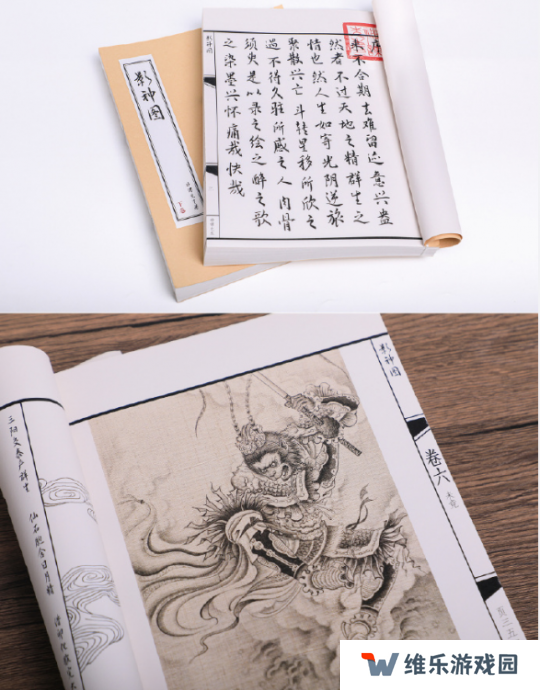 影神图
序
来不合期去难留迩意兴盎
然者不过天地之精群生之
情也然人生如寄光阴逆旅
聚散兴亡斗转星移所欣之
遇不得久驻所感之人肉骨
须臾是以录之绘之醉之歌
之染墨兴怀痛哉快哉
影神图
卷六
三阳交泰产群生 仙石胞含日月精 借卵化猴完大
维乐游戏园